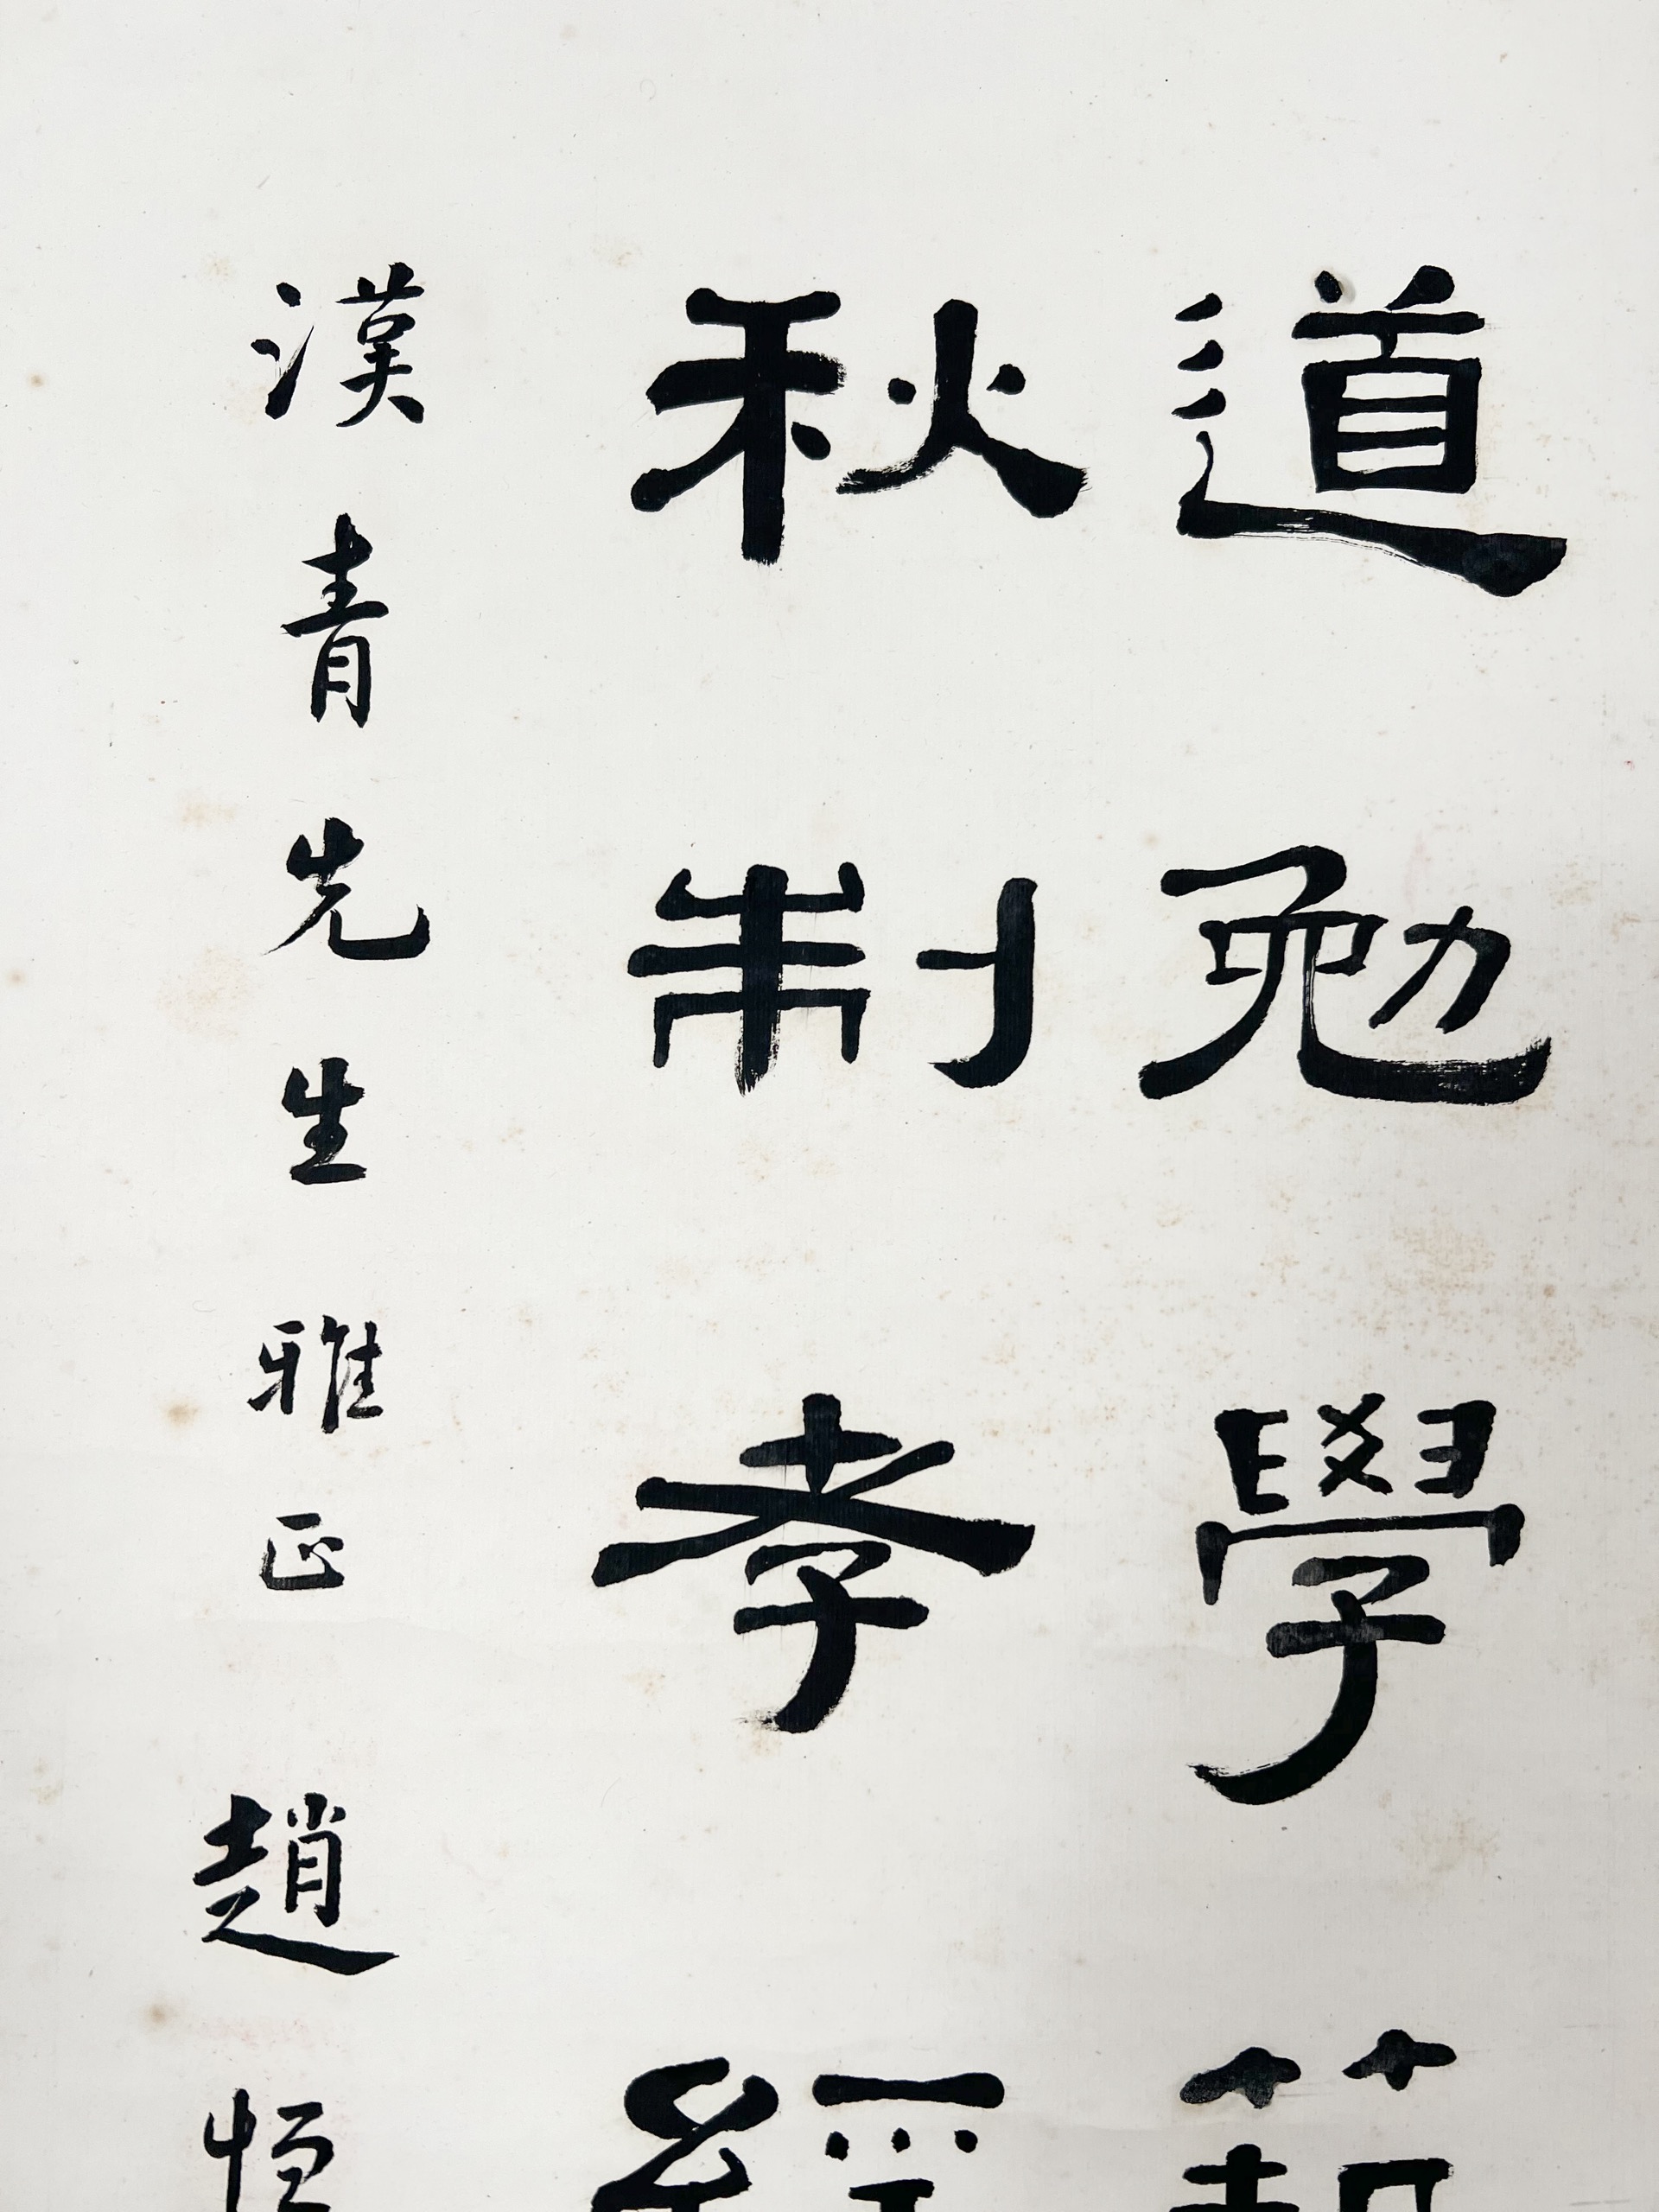 道勉學藝
秋制孝經
漢青先生雅正趙恒